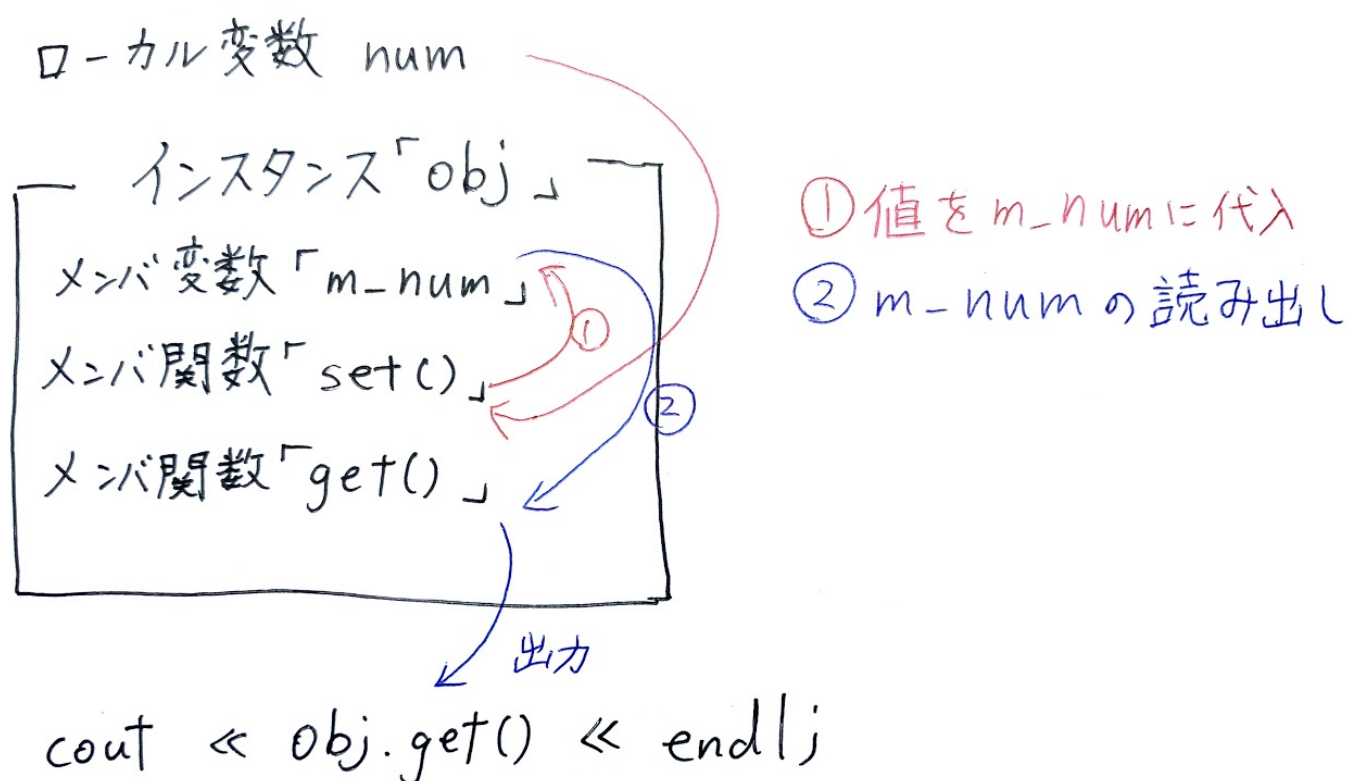 ローカル変数 num
インスタンス「obj」
メンバ変数「m_num」
メンバ関数「set()」
メンバ関数「get()」
①
②
①値をm_numに代入
②m_numの読み出し
出力
cout << obj.get() << endl;